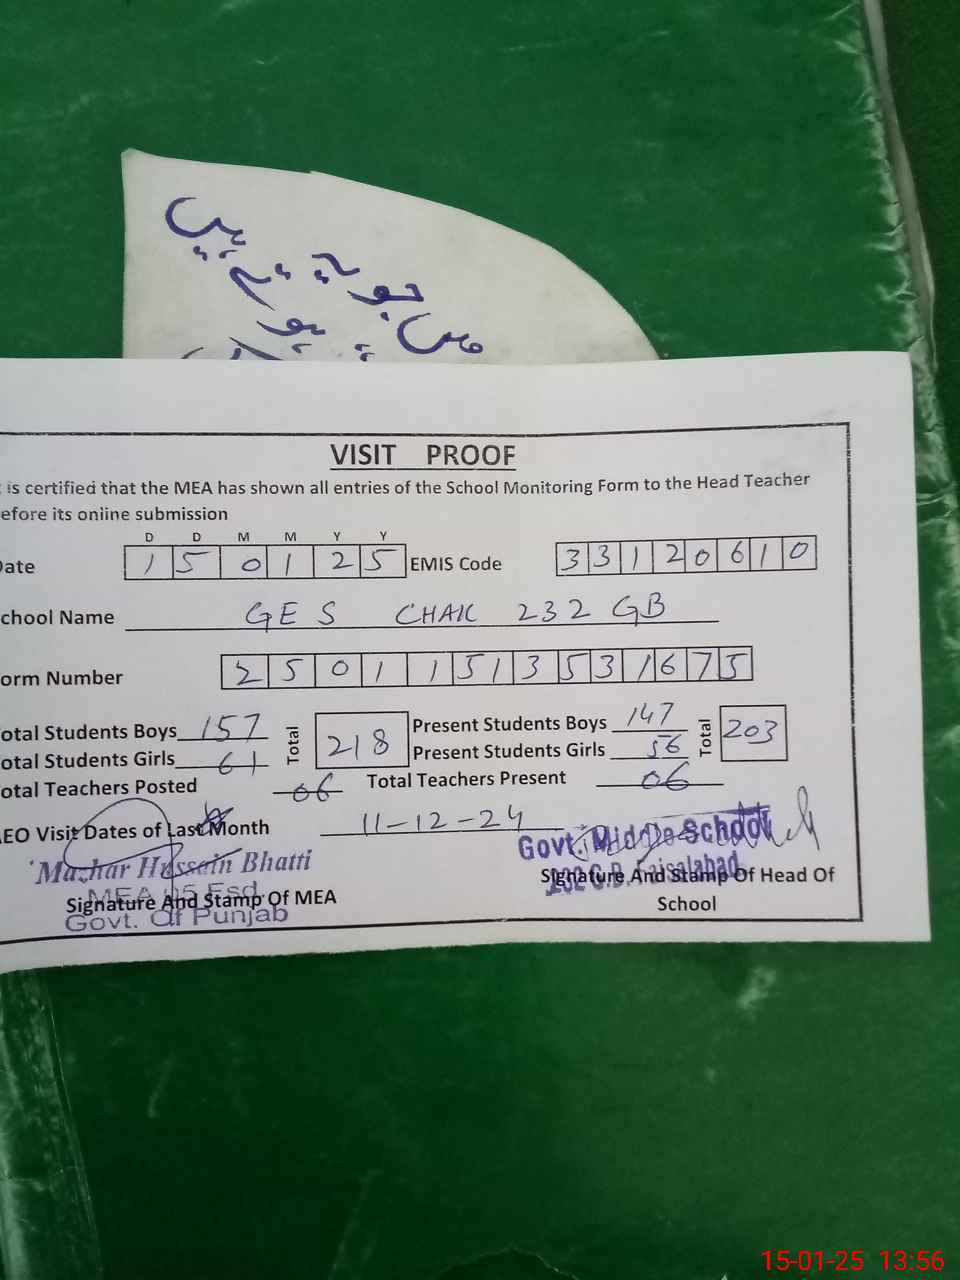 میں جو آتے ہیں
VISIT PROOF
is certified that the MEA has shown all entries of the School Monitoring Form to the Head Teacher
efore its online submission
D D M M Y Y
ate 1 5 0 1 2 5 EMIS Code 3 3 1 2 0 6 1 0
chool Name GES CHAK 232 GB
orm Number 2 5 0 1 1 5 1 3 5 3 1 6 7 5
otal Students Boys 157 Total 218 Present Students Boys 147 Total 203
otal Students Girls 61 Present Students Girls 56
otal Teachers Posted 06 Total Teachers Present 06
EO Visit Dates of Last Month 11-12-24
Mazhar Hussain Bhatti
MEA 05 Fsd.
Govt. Of Punjab
Signature And Stamp Of MEA
Govt. Middle School
232 G.B. Faisalabad
Signature And Stamp Of Head Of
School
15-01-25 13:56